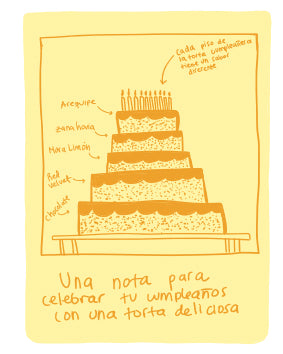 cada piso de
la torta cumpleañera
tiene un sabor
diferente
Arequipe
zanahoria
Mora Limón
Red
velvet
chocolate
Una nota para
celebrar tu cumpleaños
con una torta deliciosa